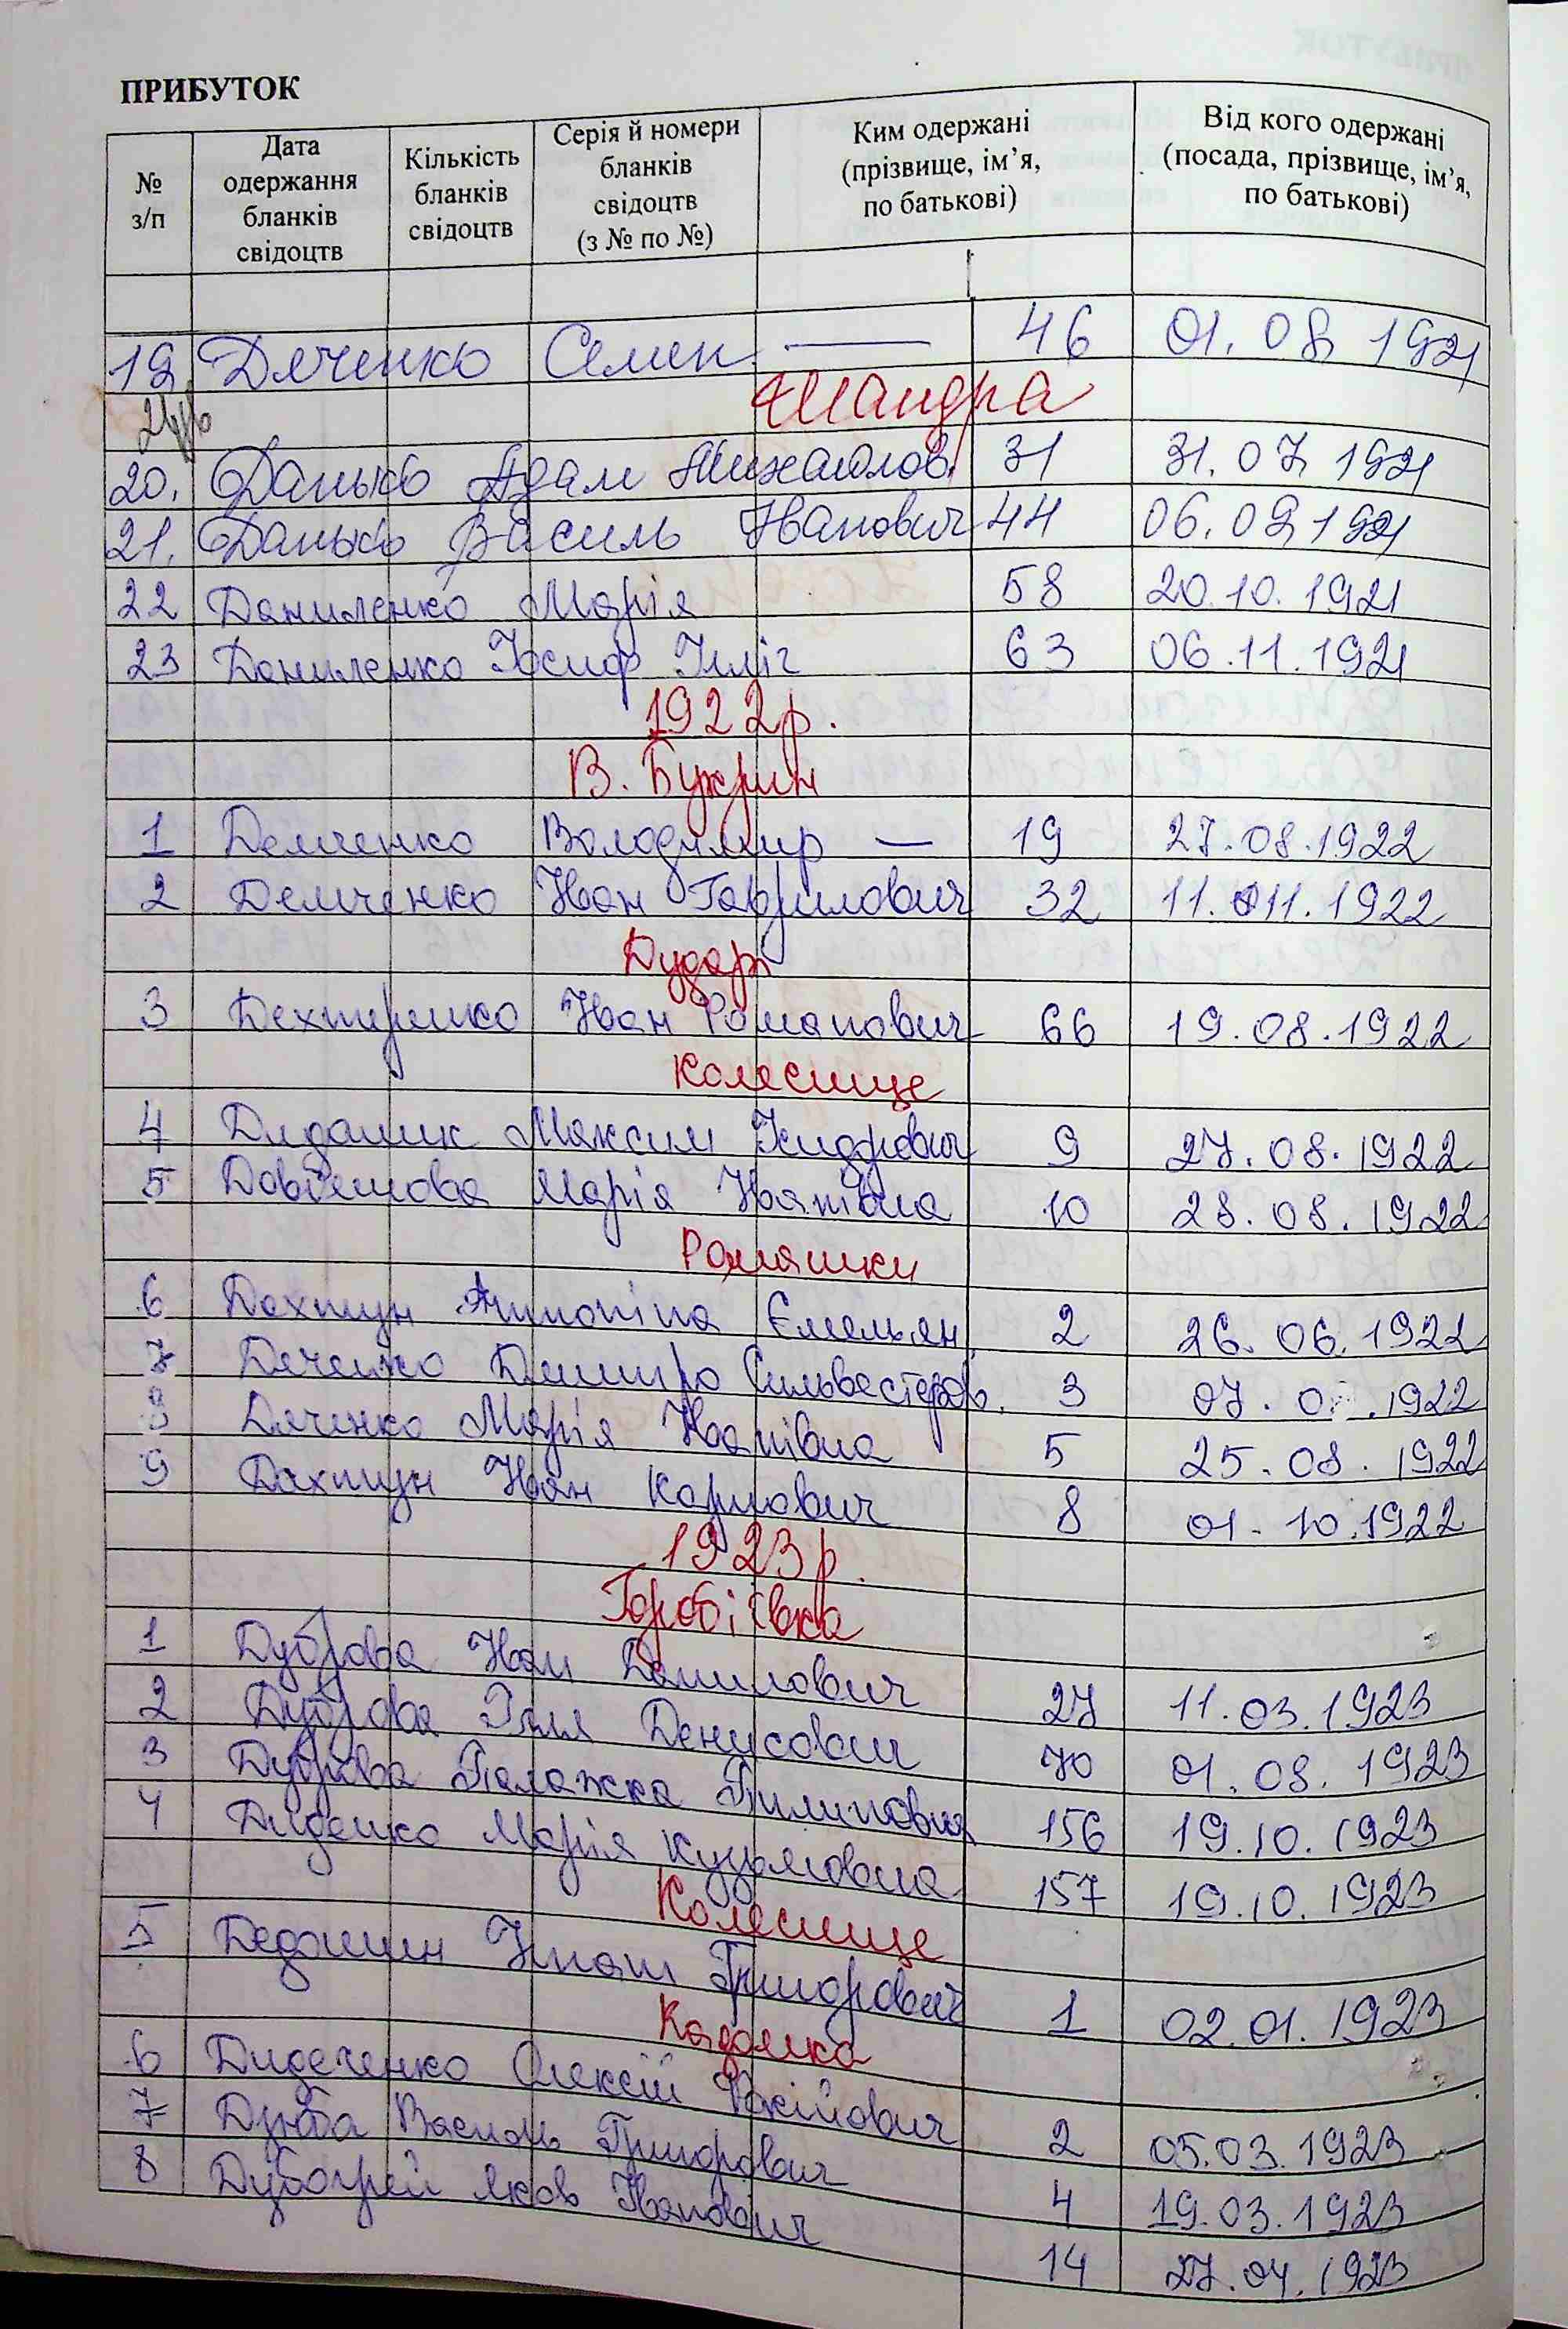 ПРИБУТОК
№ з/п
Дата одержання бланків свідоцтв
Кількість бланків свідоцтв
Серія й номери бланків свідоцтв (з № по №)
Ким одержані (прізвище, ім’я, по батькові)
Від кого одержані (посада, прізвище, ім’я, по батькові)
19. Дяченко Семен — 46 01.08.1921
Шандра
20. Данько Адам Михайлов. 31 31.07.1921
21. Данько Василь Іванович 44 06.09.1921
22 Даниленко Марія 58 20.10.1921
23 Даниленко Йосиф Ілліч 63 06.11.1921
1922р.
В. Букрин
1 Демченко Володимир — 19 27.08.1922
2 Демченко Іван Гаврилович 32 11.11.1922
Дударі
3 Дехтяренко Іван Романович 66 19.08.1922
Колесище
4 Максим 9 27.08.1922
5 Марія Іванівна 10 28.08.1922
Ромашки
6 Дахтун Антоніна Ємельян. 2 26.06.1922
7 Дяченко Дмитро Сильвестров. 3 07. .1922
8 Дяченко Марія Іванівна 5 25.08.1922
9 Дахтун Іван Карпович 8 01.10.1922
1923р.
Горобіївка
1 Дуброва Іван Данилович 27 11.03.1923
2 Дуброва Ілля Денисович 70 01.08.1923
3 Дуброва Палажка Пилиповна 156 19.10.1923
4 Диденко Марія Кузьмовна 157 19.10.1923
Колесище
5 Ігнат Григорович 1 02.01.1923
Кадомка
6 Олексій 2 05.03.1923
7 Дзюба Василь Григорович 4 19.03.1923
8 Дубогрей Яков Іванович 14 27.04.1923